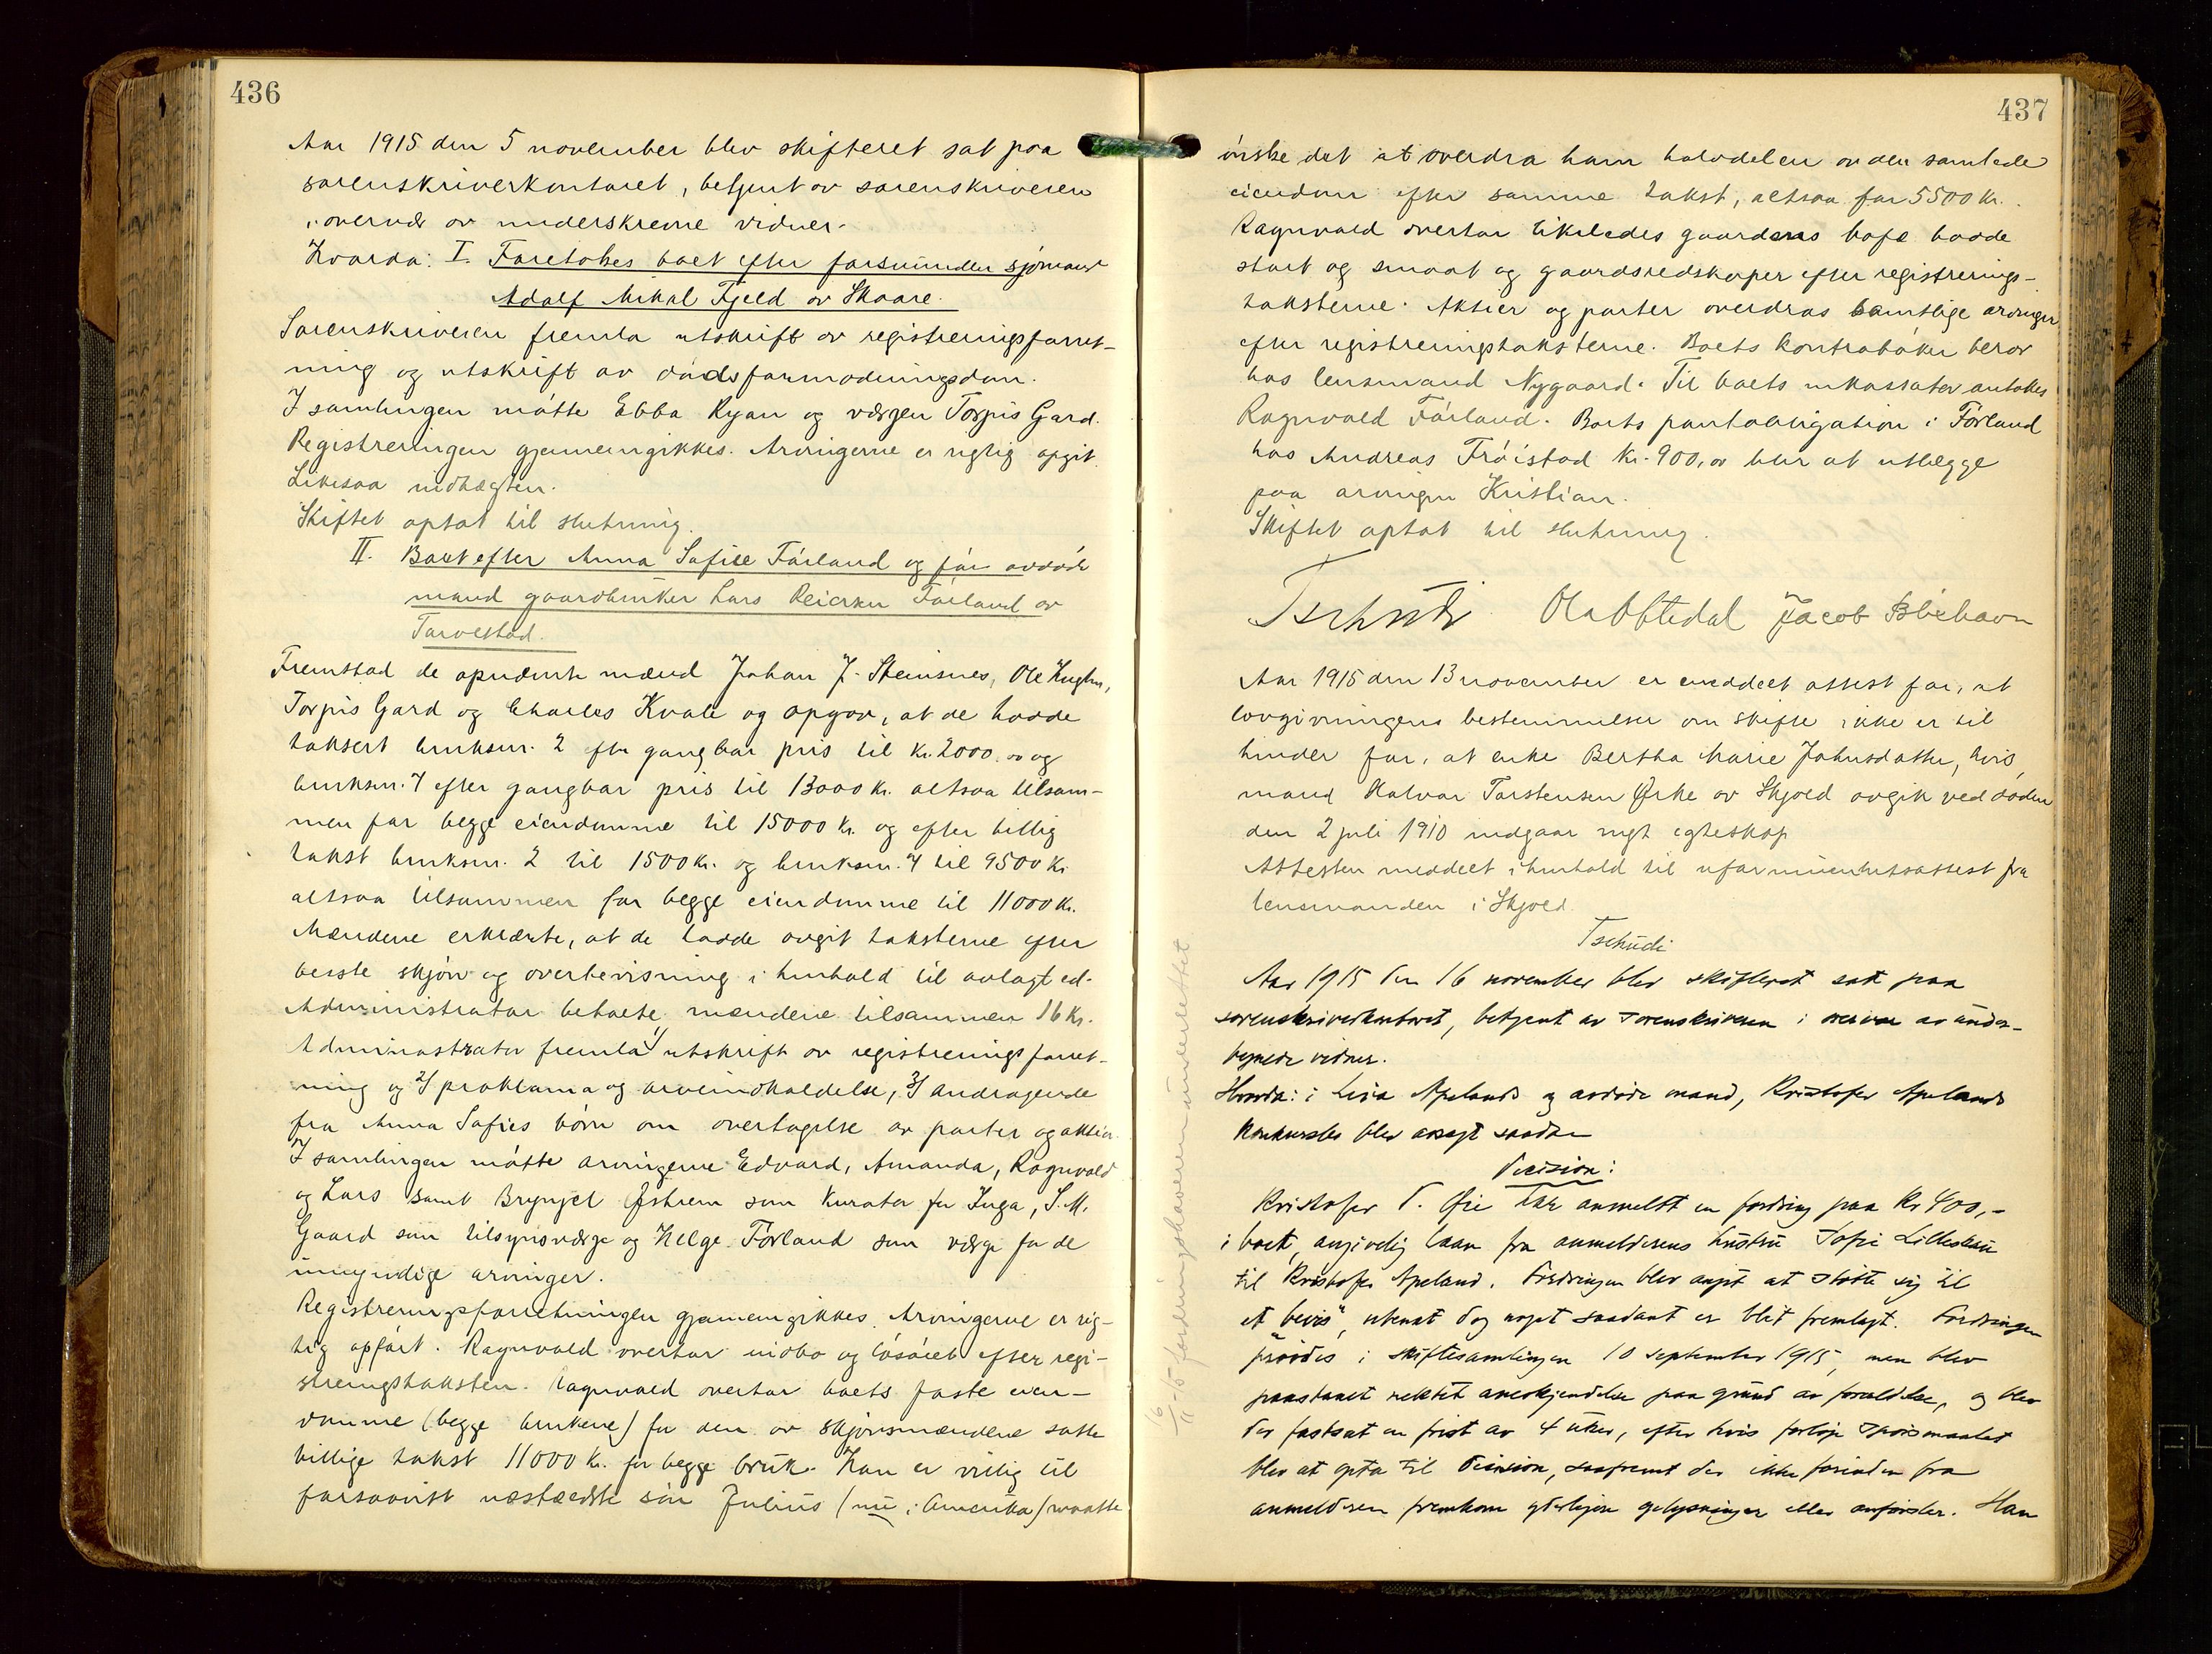 436
Aar 1915 den 5 november blev skifteret sat paa
sorenskriverkontoret, betjent av sorenskriveren
i overvær av underskrevne vidner.
Hvorda: I. Foretokes boet efter forsvunden sjømand
Adolf Mikal Fjeld av Skaare.
Sorenskriveren fremla utskrift av registreringsforret-
ning og utskrift av dødsformodningsdom.
I samlingen møtte Ebba Ryan og værgen Torgis Gard.
Registreringen gjennemgikkes. Arvingerne er rigtig opgit.
Likesaa indtægten.
Skiftet optat til slutning.
II. Boet efter Anna Sofie Førland og før avdøde
mand gaardbruker Lars Reiersen Førland av
Torvestad.
Fremstod de opnævnte mænd Johan J. Steinsnes, Ole Hughn,
Torgis Gard og Charles Kvale og opgav, at de hadde
taksert bruksnr. 2 efter gangbar pris til Kr. 2000.00 og
bruksnr. 7 efter gangbar pris til 13000 Kr. altsaa tilsam-
men for begge eiendomme til 15000 Kr. og efter billig
takst bruksnr. 2 til 1500 Kr. og bruksnr. 7 til 9500 Kr.
altsaa tilsammen for begge eiendomme til 11000 Kr.
Mændene erklærte, at de hadde avgit taksterne efter
beste skjøn og overbevisning i henhold til avlagt ed.
Administrator betalte mændene tilsammen 16 Kr.
Administrator fremla 1/ utskrift av registreringsforret-
ning og 2/ proklama og arveindkaldelse, 3/ andragende
fra Anna Sofies børn om overtagelse av parter og aktier.
I samlingen møtte arvingerne Edvard, Amanda, Ragnvald
og Lars samt Brynjel Østrem som kurator for Inga, S. M.
Gaard som tilsynsværge og Helge Førland som værge for de
umyndige arvinger.
Registreringsforretningen gjennemgikkes. Arvingerne er rig-
tig opført. Ragnvald overtar indbo og løsøret efter regi-
streringstaksten. Ragnvald overtar boets faste eien-
domme (begge brukene) for den av skjønsmændene satte
billige takst 11000 Kr. for begge bruk. Han er villig til
forsaavidt næstældste søn Julius (nu i Amerika) maatte
437
ønske det at overdra ham halvdelen av den samlede
eiendom efter samme takst, altsaa for 5500 Kr.
Ragnvald overtar likeledes gaardens bofæ baade
stort og smaat og gaardsredskaper efter registrerings-
taksterne. Aktier og parter overdras samtlige arvinger
efter registreringstaksterne. Boets kontrabøker beror
hos lensmand Nygaard. Til boets inkassator antokes
Ragnvald Førland. Boets pantobligation i Førland
hos Andreas Frøistad Kr. 900,00 blir at utlægge
paa arvingen Kristian.
Skiftet optat til slutning.
Tschudi Ola Oftedal Jacob Bliehavn
Aar 1915 den 13 november er meddelt attest for, at
lovgivningens bestemmelser om skifte ikke er til
hinder for, at enke Bertha Marie Johnsdatter, hvis
mand Halvor Torstensen Ørke av Skjold avgik ved døden
den 2 juli 1910 indgaar nyt egteskap
Attesten meddelt i henhold til uformuenhetsattest fra
lensmanden i Skjold.
Tschudi
Aar 1915 den 16 november blev skifteret sat paa
sorenskriverkontoret, betjent av sorenskriveren i overvær av under-
tegnede vidner.
Hvorda: i Lisa Apelands og avdøde mand, Kristofer Apelands
konkursbo blev avsagt saadan
Decision:
Kristofer T. Øie har anmeldt en fordring paa Kr 400,-
i boet, angivelig laan fra anmelderens hustru Sofie Lilleskau
til Kristofer Apeland. Fordringen blev angit at støtte sig til
et "bevis", utenat dog noget saadant er blit fremlagt. Fordringen
prøvdes i skiftesamlingen 10 september 1915, men blev
paastaaet nektet anerkjendelse paa grund av forældelse, og blev
der fastsat en frist av 4 uker, efter hvis forløp spørsmaalet
blev at opta til decision, saafremt der ikke forinden fra
anmelderen fremkom yderligere oplysninger eller anførsler. Han
16/11-15 fordringshaveren underrettet